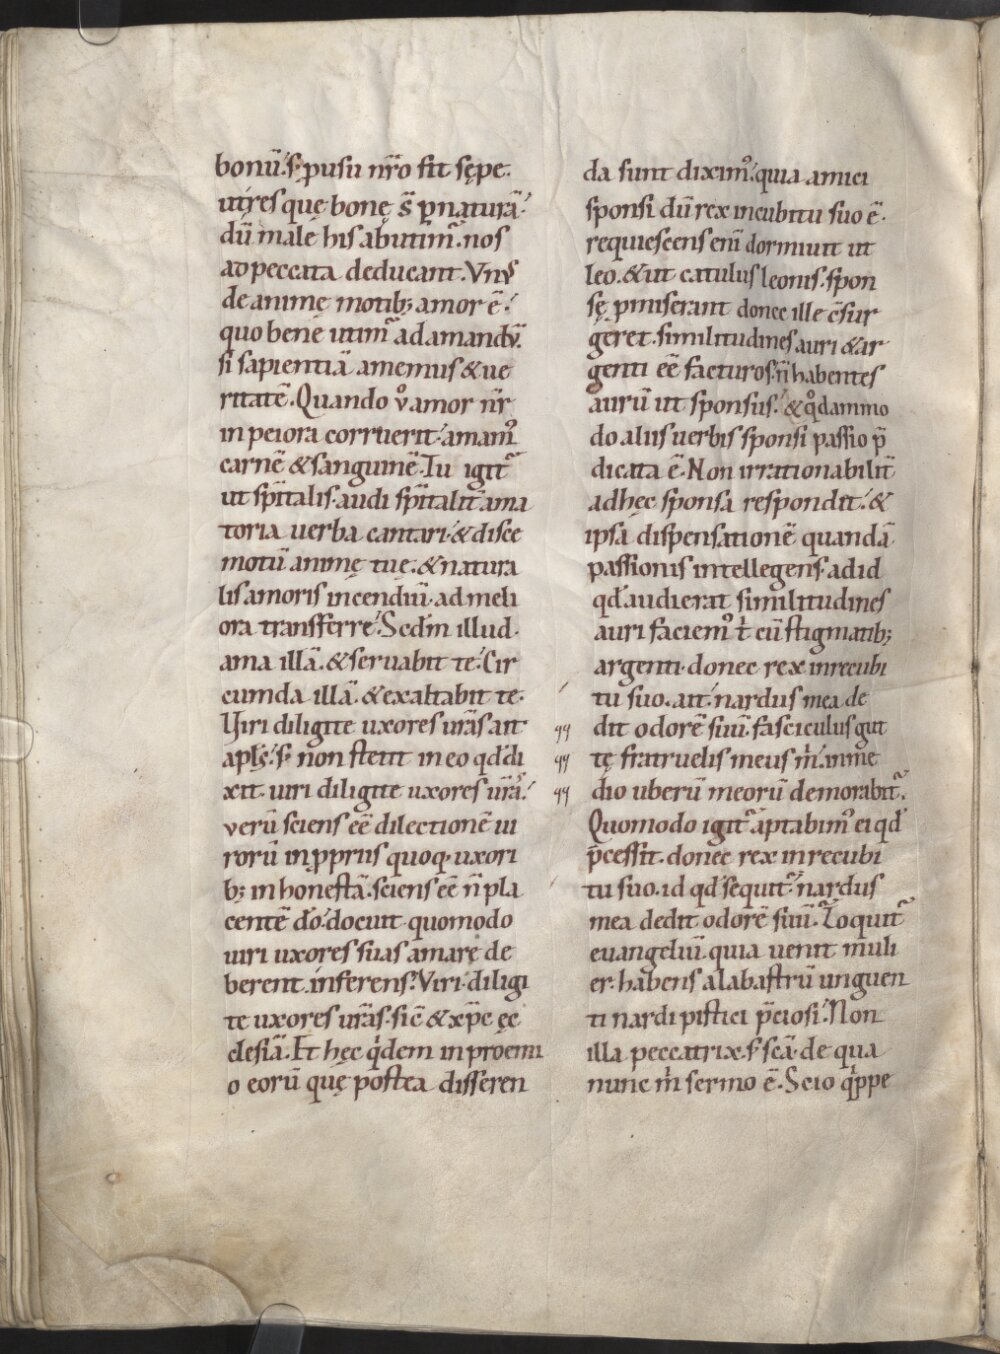 bonū. s; pusu nr̄o fit sępe.
ut res quę bonę s̄ p naturā.
dū male his abutim᷑. nos
ad peccata deducant. Vnꝰ
de animę motib; amor ē.
quo bene utim᷑ ad amandū.
si sapientiā amemus & ue
ritatē. Quando v̊ amor nr̄
in peiora corruerit. amamꝰ
carnē & sanguinē. Tu igit᷑
ut sp̄italis. audi sp̄italit̄ ama
toria uerba cantari. & disce
motū animę tuę. & natura
lis amoris incendiū. ad meli
ora transferre. Sedm̄ illud.
ama illā. & seruabit te. Cir
cumda illā. & exaltabit te.
Viri diligite uxores ur̄as ait
apl̄ę. s; non stetit in eo qd̄ di
xit. uiri diligite uxores ur̄as.
verū sciens eē dilectionē ui
rorū in ꝓpriis quoq; uxori
b; inhonestā. sciens eē n̄ pla
centē dō. docuit quomodo
uiri uxores suas amare de
berent. inferens. Viri diligi
te uxores ur̄as. sic̄ & xp̄c ęc
clesiā. Et hęc qⁱdem in proemi
o eorū quę postea differen
da sunt diximꝰ. quia amici
sponsi dū rex in cubitu suo ē.
requiescens enī dormiuit ut
leo. & ut catulus leonis. spon
sę pmiserant donec ille c̄sur
geret. similitudines auri & ar
genti eē facturos. n̄ habentes
aurū ut sponsus. & qͦdammo
do aliis uerbis sponsi passio p̄
dicata ē. Non irrationabilit̄
ad hęc sponsa respondit. &
ipsa dispensationē quandā
passionis intellegens. ad id
qd̄ audierat similitudines
auri faciemꝰ t̄ cū stigmatib;
argenti. donec rex in recubi
tu suo. ait. nardus mea de
dit odorē suū. fasciculus gut
tę fratruelis meus m̄. in me
dio uberū meorū demorabit᷑.
Quomodo igit᷑ aptabimꝰ ei qd̄
p̄cessit. donec rex in recubi
tu suo. id qd̄ sequit᷑. nardus
mea dedit odorē suū. Loquit᷑
euangeliū. quia uenit muli
er habens alabastrū unguen
ti nardi pistici p̄ciosi. Non
illa peccatrix. s; sc̄a. de qua
nunc m̄ sermo ē. Scio qⁱppe